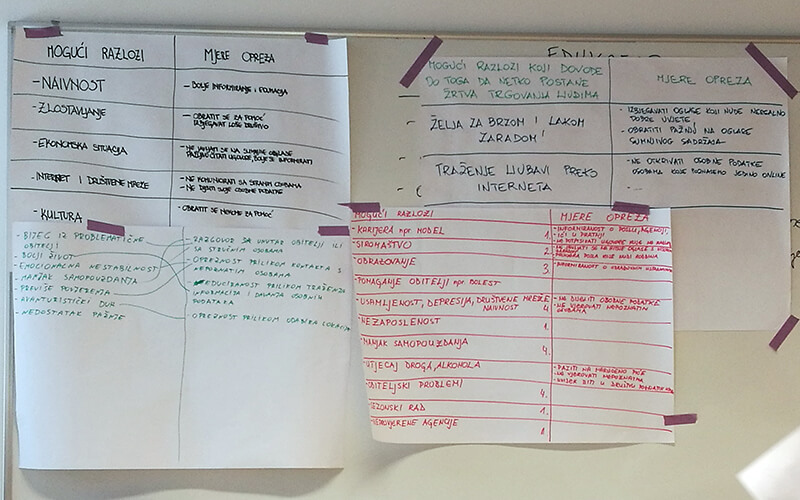 MOGUĆI RAZLOZI
MJERE OPREZA
- NAIVNOST
- BOLJE INFORMIRANJE I EDUKACIJA
- ZLOSTAVLJANJE
- OBRATIT SE ZA POMOĆ
IZBJEGAVAT LOŠE DRUŠTVO
- EKONOMSKA SITUACIJA
- NE JAVLJATI SE NA SUMLJIVE OGLASE
PAŽLJIVO ČITATI UGOVORE, BOLJE SE INFORMIRATI
- INTERNET I DRUŠTVENE MREŽE
- NE KOMUNICIRATI SA STRANIM OSOBAMA
- NE DIJELITI SVOJE OSOBNE PODATKE
- KULTURA
- OBRATIT SE NEKOME ZA POMOĆ
- BIJEG IZ PROBLEMATIČNE
OBITELJI
- BOLJI ŽIVOT
- EMOCIONALNA NESTABILNOST
- MANJAK SAMOPOUZDANJA
- PREVIŠE POVJERENJA
- AVANTURISTIČKI DUH
- NEDOSTATAK PAŽNJE
- RAZGOVOR SA UNUTAR OBITELJI ILI
SA STRUČNIM OSOBAMA
- OPREZNOST PRILIKOM KONTAKTA S
NEPOZNATIM OSOBAMA
PRILIKOM TRAŽENJA
INFORMACIJA I DAVANJA OSOBNIH
PODATAKA
- OPREZNOST PRILIKOM ODABIRA
MOGUĆI RAZLOZI KOJI DOVODE
DO TOGA DA NETKO POSTANE
ŽRTVA TRGOVANJA LJUDIMA
MJERE OPREZA
ŽELJA ZA BRZOM I LAKOM
ZARADOM!
- IZBJEGAVATI OGLASE KOJI NUDE NEREALNO
DOBRE UVJETE
- OBRATITI PAŽNJU NA OGLASE
SUMNJIVOG SADRŽAJA
TRAŽENJE LJUBAVI PREKO
INTERNETA
- NE OTKRIVATI OSOBNE PODATKE
OSOBAMA KOJE POZNAJEMO JEDINO ONLINE
MOGUĆI RAZLOZI
MJERE OPREZA
- KARIJERA npr. MODEL 1.
- INFORMIRANOST O POSLU, AGENCIJI,
- IĆI U PRATNJI
- SIROMAŠTVO 2.
- OBRAZOVANJE 3.
- POMAGANJE OBITELJI npr. BOLEST
- USAMLJENOST, DEPRESIJA, DRUŠTVENE MREŽE
NAIVNOST 4.
- NE DIJELITI OSOBNE PODATKE
- NE VJEROVATI NEPOZNATIM
OSOBAMA
- NEZAPOSLENOST 1.
- MANJAK SAMOPOUZDANJA 4.
- UTJECAJ DROGA, ALKOHOLA
- PAZITI NA NARUČENO PIĆE
- NE VJEROVATI NEPOZNATIMA
- OBITELJSKI PROBLEMI 4.
- SEZONSKI RAD 1.
- NEPROVJERENE AGENCIJE 1.